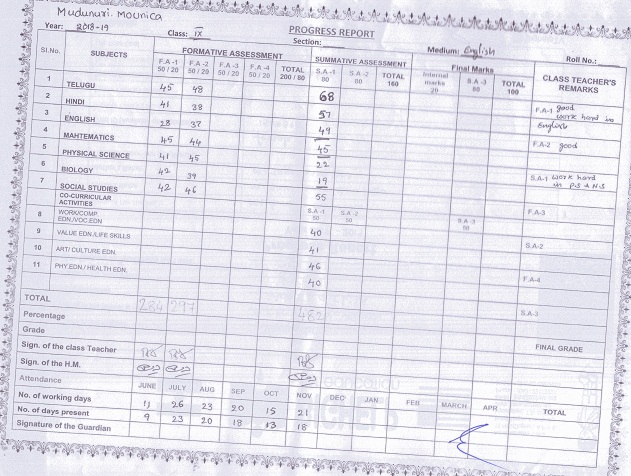 Mudunuri. Mounica
PROGRESS REPORT
Year: 2018-19 Class: IX Section: Medium: English Roll No.:
Sl.No. SUBJECTS FORMATIVE ASSESSMENT SUMMATIVE ASSESSMENT Final Marks CLASS TEACHER'S REMARKS
F.A -1 50 / 20 F.A -2 50 / 20 F.A -3 50 / 20 F.A -4 50 / 20 TOTAL 200 / 80 S.A -1 80 S.A -2 80 TOTAL 160 Internal marks 20 S.A -3 80 TOTAL 100
1 TELUGU 45 48 68
2 HINDI 41 38 57
3 ENGLISH 28 37 49
4 MAHTEMATICS 45 44 45
5 PHYSICAL SCIENCE 41 45 22
6 BIOLOGY 42 39 19
7 SOCIAL STUDIES 42 46 55
F.A-1 good
work hard in
English
F.A-2 good
S.A-1 work hard
in P.S & N.S
F.A-3
S.A-2
F.A-4
S.A-3
CO-CURRICULAR ACTIVITIES S.A -1 50 S.A -2 50 S.A -3 50
8 WORK/COMP. EDN./VOC.EDN 40
9 VALUE EDN./LIFE SKILLS 41
10 ART/ CULTURE EDN. 46
11 PHY.EDN./ HEALTH EDN. 40
TOTAL 284 297 482
Percentage
Grade FINAL GRADE
Sign. of the class Teacher
Sign. of the H.M.
Attendance JUNE JULY AUG SEP OCT NOV DEC JAN FEB MARCH APR TOTAL
No. of working days 11 26 23 20 15 21
No. of days present 9 23 20 18 13 18
Signature of the Guardian